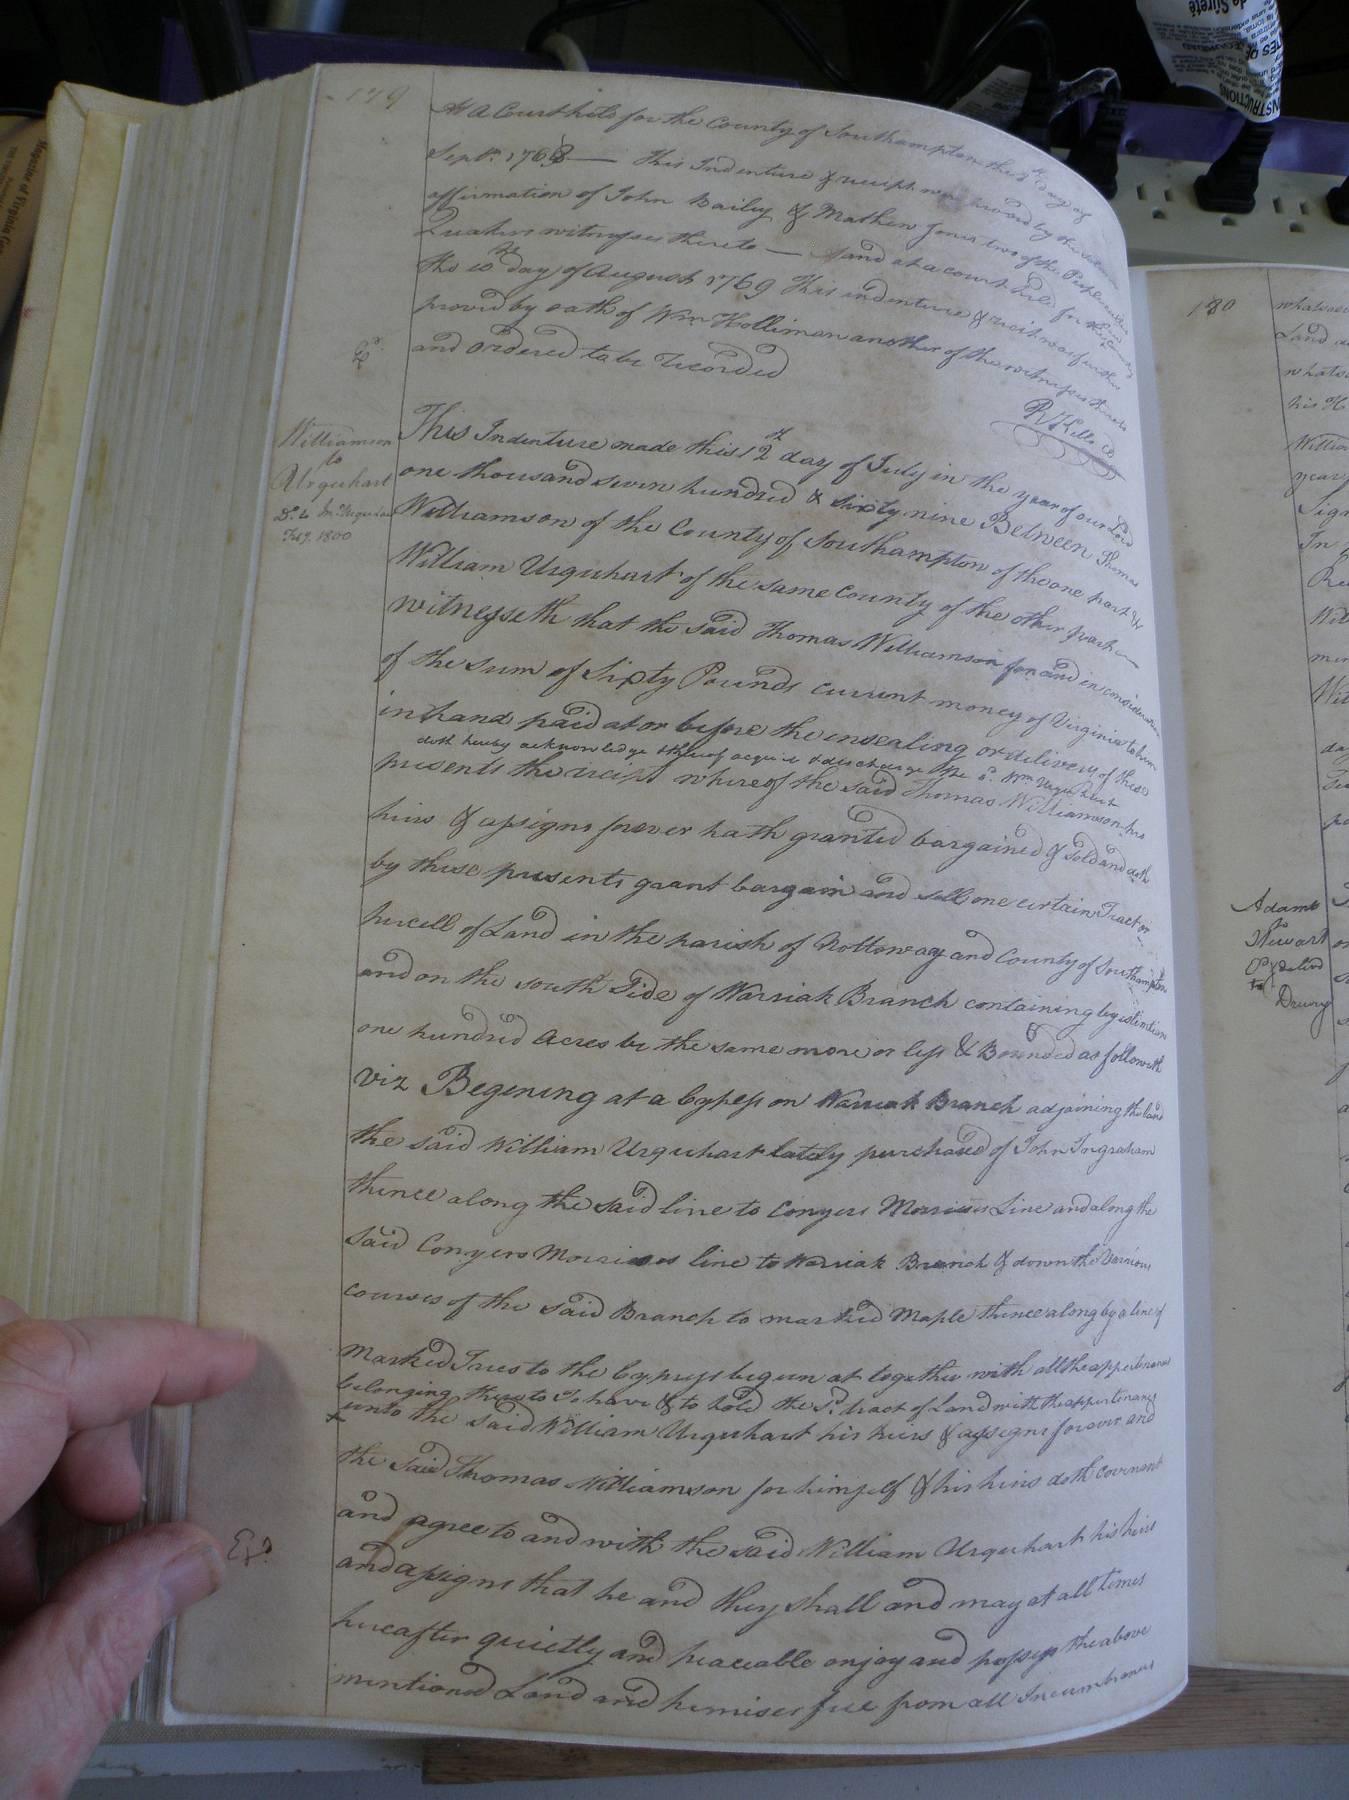 179
At a Court held for the County of Southampton the 8th day of
Septr. 1768 — This Indenture & reciept were proved by the solemn
affirmation of John Bailey & Mathew Jones two of the People called
Quakers witnesses thereto — And at a court held for the said County
the 10th day of August 1769 This indenture & reciet was further
proved by oath of Wm. Holliman another of the witnesses thereto
and Ordered to be recorded
R. Kello CC
Williamson
to
Urquhart
This Indenture made this 12th day of July in the year of our Lord
one thousand seven hundred & sixty nine Between Thomas
Williamson of the County of Southampton of the one part &
William Urquhart of the same County of the other part
witnesseth that the said Thomas Williamson for and in consideration
of the sum of Sixty Pounds current money of Virginia to him
in hand paid at or before the ensealing or delivery of these
doth hereby acknowledge & thereof acquit & discharge the sd. Wm Urquhart
presents the reciept whereof the said Thomas Williamson his
heirs & assigns forever hath granted bargained & sold and doth
by these presents grant bargain and sell one certain Tract or
percell of Land in the parish of Nottoway and County of Southampton
and on the south Side of Warriak Branch containing by estimation
one hundred Acres be the same more or less & Bounded as followeth
Viz Begening at a Cypess on Warriak Branch adjoining the land
the said William Urquhart lately purchased of John Ingraham
thence along the said line to Conyers Line and along the
said Conyers line to Warriak Branch & down the Various
courses of the said Branch to marked Maple thence along by a line of
Marked Trees to the Cypress begun at together with all the appertenances
belonging thereto To have & to hold the Sd. tract of Land with the appertenances
unto the said William Urquhart his heirs & assigns forever and
the said Thomas Williamson for himself & his heirs doth covenant
and agree to and with the said William Urquhart his heirs
and assigns that he and they shall and may at all times
hereafter quietly and peaceable enjoy and possess the above
mentioned Land and premises free from all Incumbrances
180
whatsoever
Land
whatso
his H
William
year
Sign
In
Re
Will
Wit
Adams
Stewart
to
Drury
INSTRUCTIONS
de Sûreté